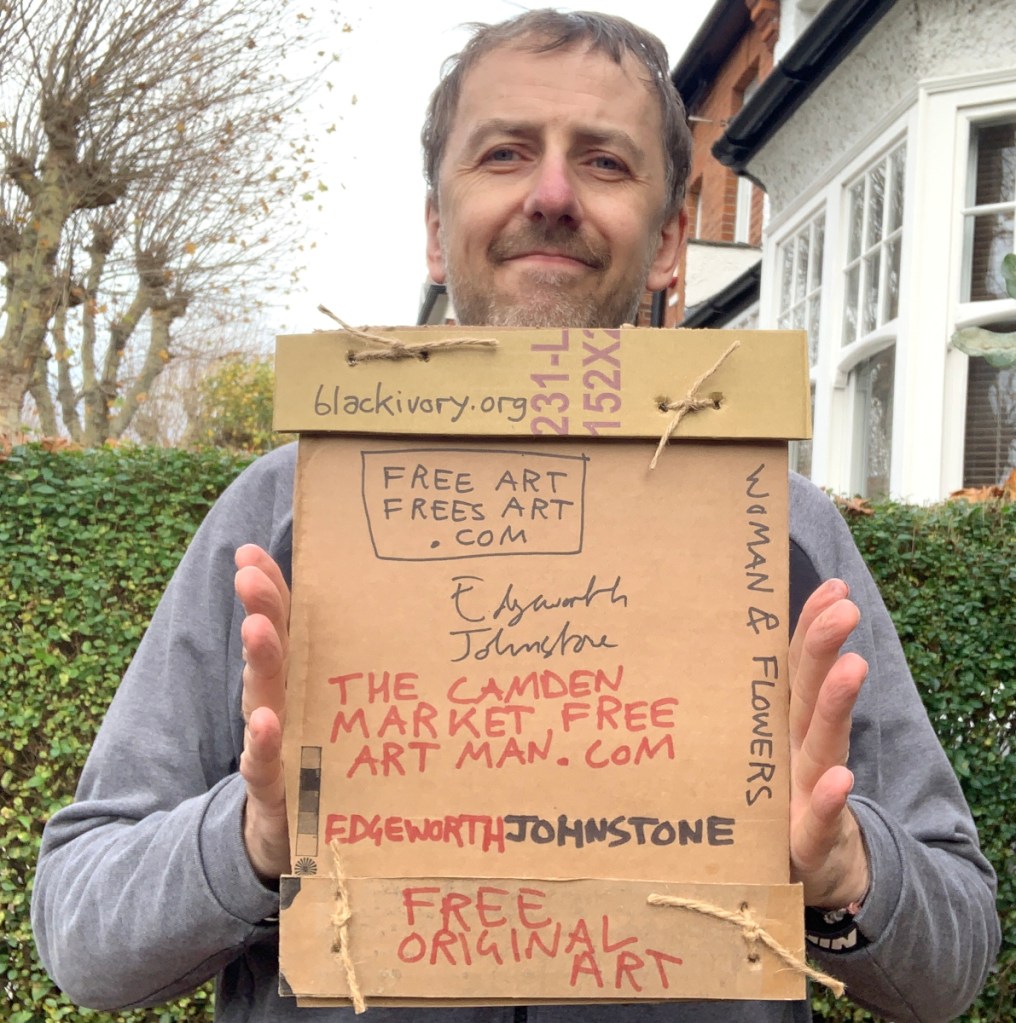 blackivory.org
231-L
152X
FREE ART
FREES ART
.COM
Edgeworth
Johnstone
WOMAN & FLOWERS
THE CAMDEN
MARKET FREE
ART MAN.COM
EDGEWORTHJOHNSTONE
FREE
ORIGINAL
ART